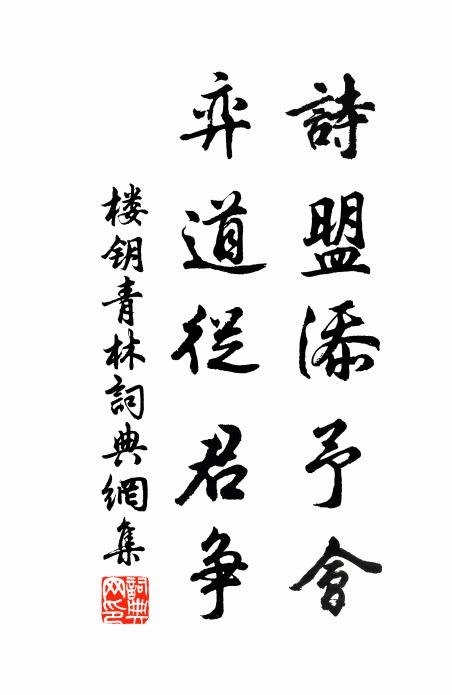 詩盟添予會
弈道從君争
楼钥青林詞典網集
詞典網印